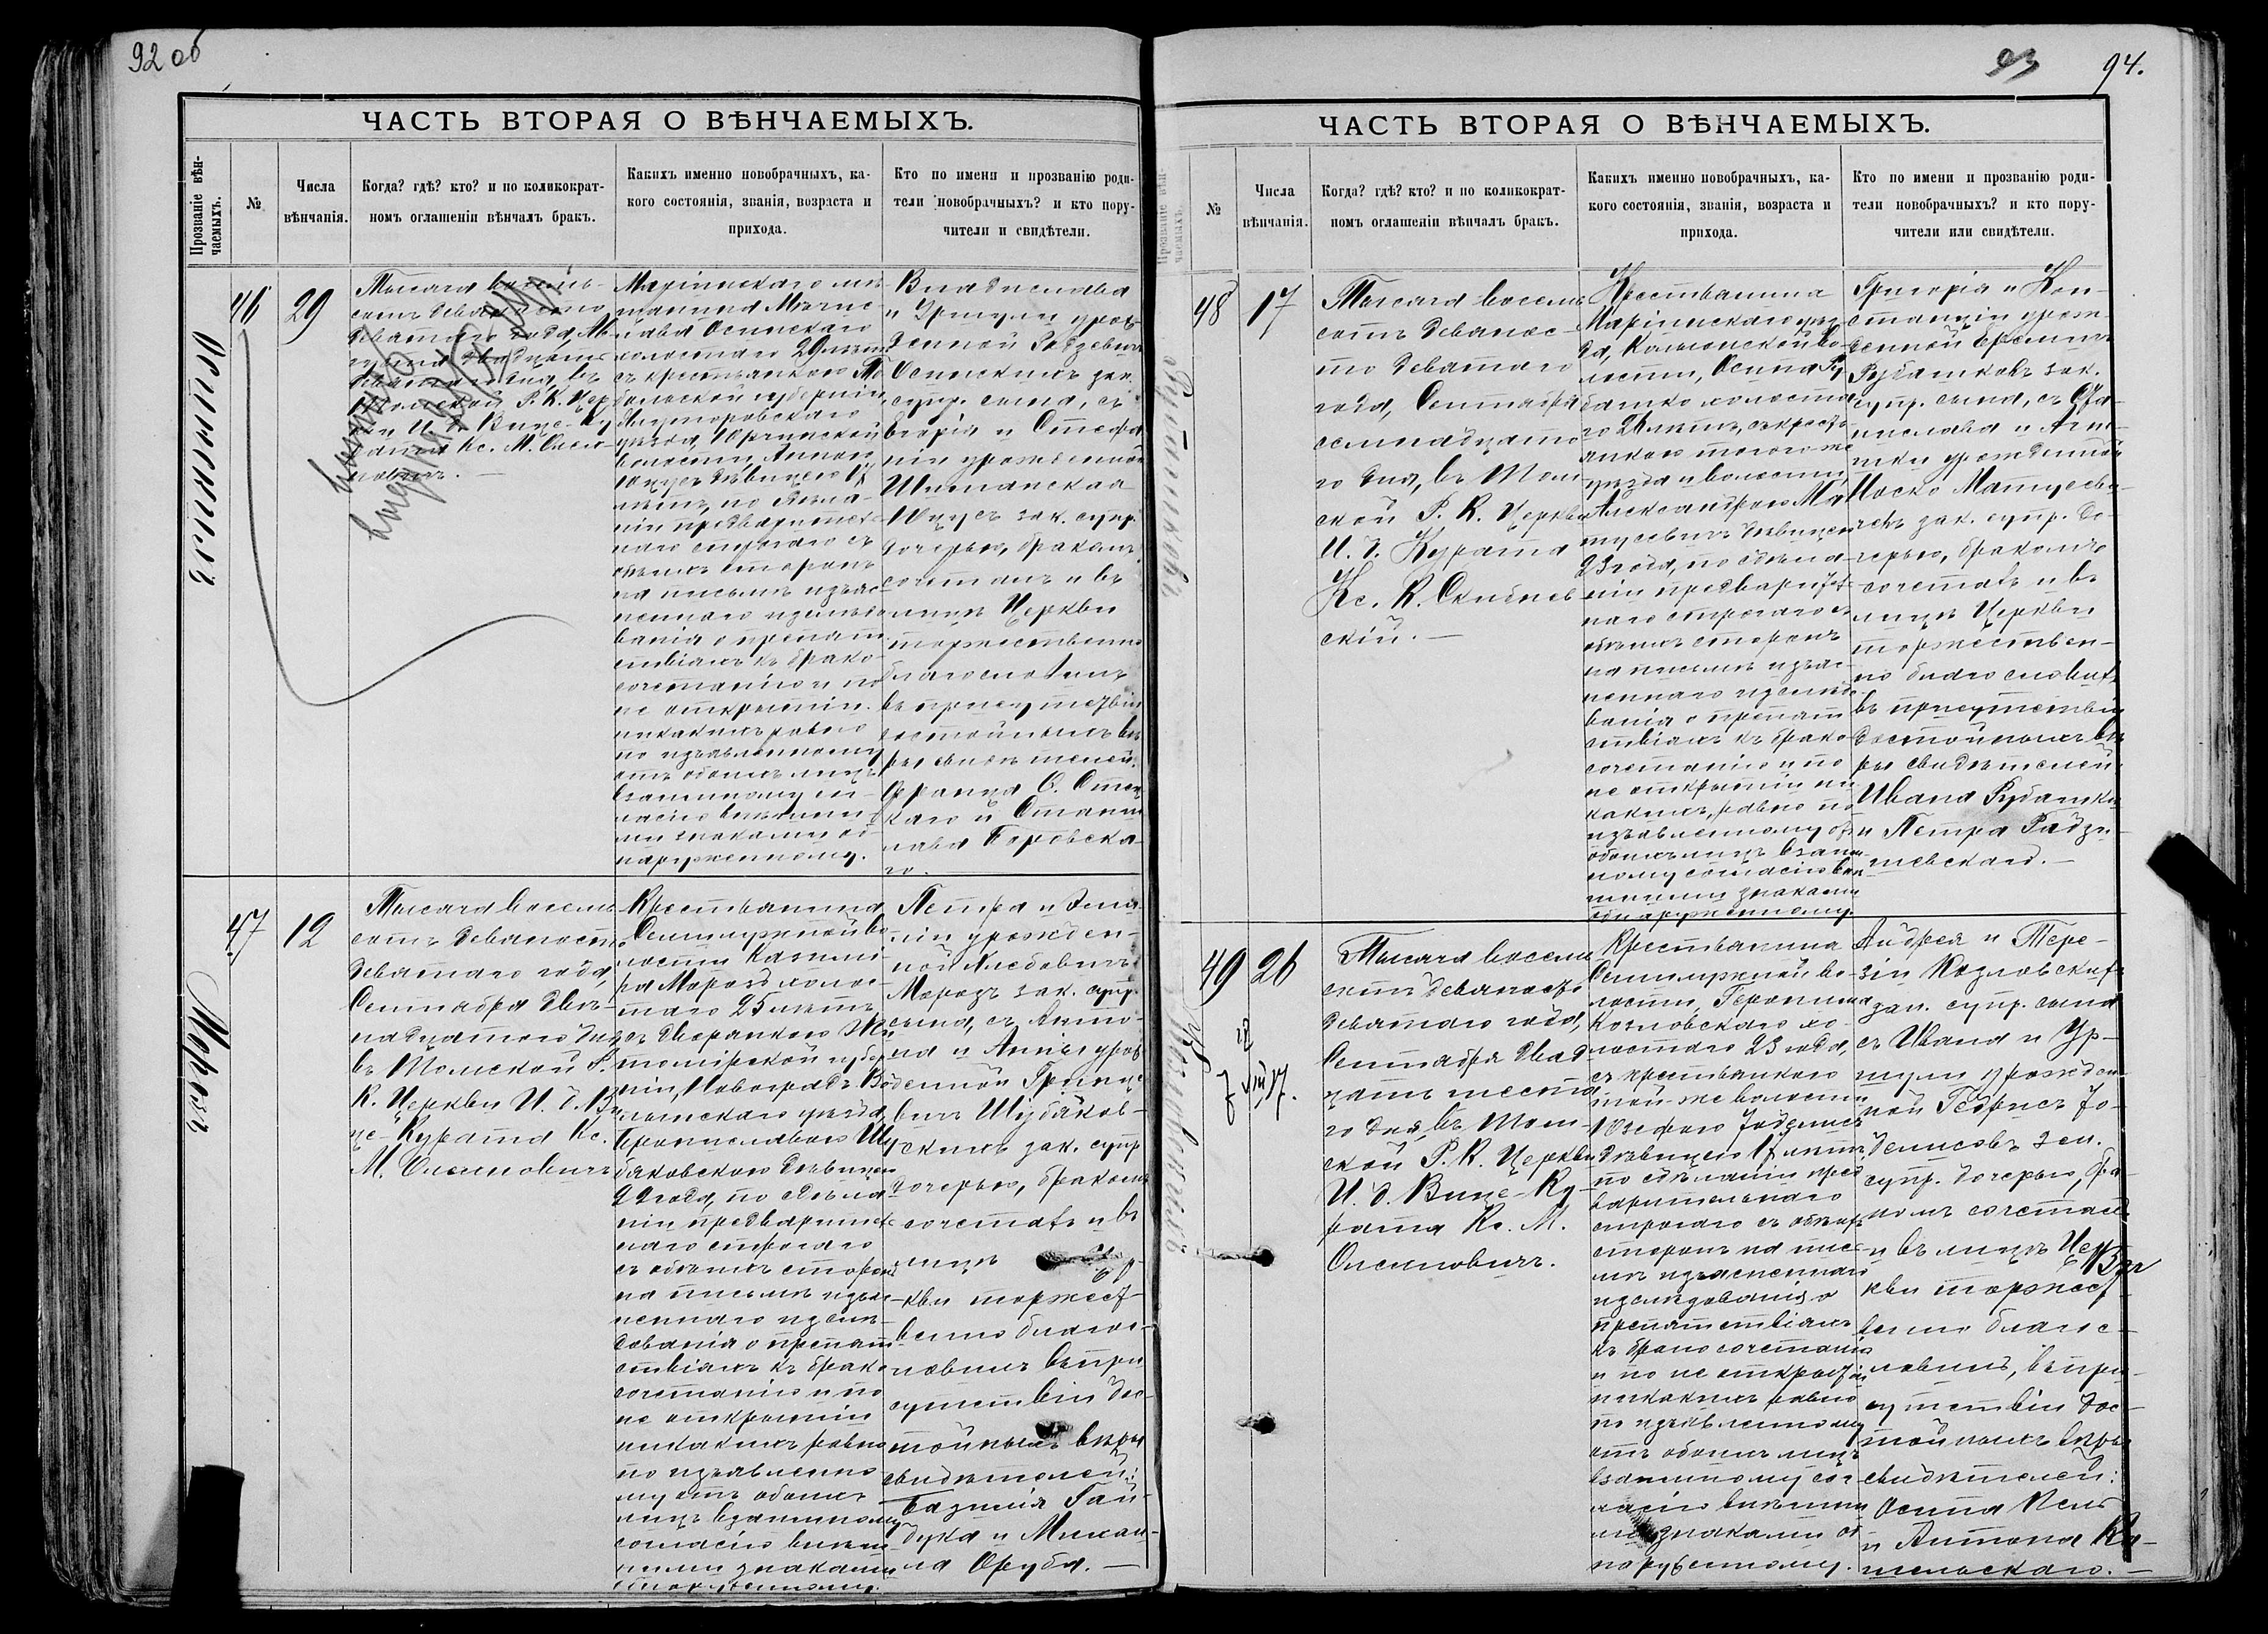 92 об
ЧАСТЬ ВТОРАЯ О ВѢНЧАЕМЫХЪ.
Прозваніе вѣн-
чаемыхъ.
№
Числа
вѣнчанія.
Когда? гдѣ? кто? и по коликократ-
номъ оглашеніи вѣнчалъ бракъ.
Какихъ именно новобрачныхъ, ка-
кого состоянія, званія, возраста и
прихода.
Кто по имени и прозванію роди-
тели новобрачныхъ? и кто пору-
чители и свидѣтели.
Осинскихъ
46
29
Тысяча восемь
сотъ девяносто
девятаго года, Ав
густа двадцать
девятаго дня, въ
Томской Р. К. Цер
кви И. д. Вице-Ку
рата Кс. М. Олеси
новичъ.
Маріинскаго мѣ
щанина Мѣчис
лава Осинскаго
холостаго 29 лѣтъ
съ крестьянкою То
больской губерніи,
Ялуторовскаго
уѣзда,
волости, Анною
Юцусъ дѣвицею 17
лѣтъ, по сдѣла
ніи предваритель
наго строгаго съ
обѣихъ сторонъ
на письмѣ изъяс
неннаго изслѣдо
ванія о препят
ствіяхъ къ брако
сочетанію и по
не открытіи
никакихъ равно
по изъявленному
отъ обоихъ лицъ
взаимному со
гласію внѣшни
ми знаками об
наруженному.
Владислава
и Уршули урож
денной
Осинскихъ зак.
супр. сына, съ
и Стефа
ніи урожденной
Шиманская
Юцусъ зак. супр.
дочерью, бракомъ
сочеталъ и въ
лицѣ Церкви
торжественно
благословилъ
въ присутствіи
достойныхъ вѣ
ры свидѣтелей
Франца О.
каго и Станис
лава Боровска
го.
Морозъ
47
12
Тысяча восемь
сотъ девяносто
девятаго года,
Сентября двѣ-
надцатого дня
въ Томской Р.
К. Церкви И. д. Ви
це-Курата Кс.
М. Олесиновичъ
Крестьянина
Семилужной во
лости Казими
ра Морозъ холос
таго 25 лѣтъ,
съ дворянкою Жи
томірской губер
ніи, Новоградъ-Во
лынскаго уѣзда
Брониславою Шу
баковскою дѣвицею
22 года, по сдѣла
ніи предваритель
наго строгаго
съ обѣихъ сторонъ
на письмѣ изъяс
неннаго изслѣ
дованія о препят
ствіяхъ къ брако
сочетанію и по
не открытіи
никакихъ равно
по изъявленно
му отъ обоихъ
лицъ взаимному
согласію внѣш
ними знаками
Петра и Эми
ліи урожден-
ной Хлебовичъ
Морозъ зак. супр.
сына, съ Анто-
на и Анны урож
денной
Шубаков-
скихъ зак. супр
дочерью, бракомъ
сочеталъ и въ
лицѣ Цер-
кви торжест
венно благос-
ловилъ въ при
сутствіи дос-
тойныхъ вѣры
свидѣтелей:
Базилія Гай-
дука и Михаи-
ла Оруба.
93
94.
ЧАСТЬ ВТОРАЯ О ВѢНЧАЕМЫХЪ.
№
Числа
вѣнчанія.
Когда? гдѣ? кто? и по коликократ-
номъ оглашеніи вѣнчалъ бракъ.
Какихъ именно новобрачныхъ, ка-
кого состоянія, званія, возраста и
прихода.
Кто по имени и прозванію роди-
тели новобрачныхъ? и кто пору-
чители или свидѣтели.
48
17
Тысяча восемь
сотъ девянос-
то девятаго
года, Сентября
семнадцато
го дня, въ Том
ской Р. К. Церкви
И. д. Курата
Кс. К.
скій.
Крестьянина
Маріинскаго уѣз
да, во-
лости, Осипа Ру
башко холоста
го 26 лѣтъ, съ крестъ
янкою того же
уѣзда и волости,
Александрою Ма
тусевичъ дѣвицею
23 года, по сдѣла-
ніи предваритель
наго строгаго съ
обѣихъ сторонъ
на письмѣ изъяс-
неннаго изслѣдо
ванія о препят
ствіяхъ къ брако
сочетанію и по
не открытіи ни
какихъ, равно по
изъявленному отъ
обоихъ лицъ взаим
ному согласію внѣ
шними знаками
обнаруженному.
Григорія и Кон-
станціи урож
денной
Рубашковъ зак.
супр. сына, съ Ста
нислава и Агне
шки урожденной
Носко Матусеви-
чевъ зак. супр. до-
черью, бракомъ
сочеталъ и въ
лицѣ Церкви
торжествен-
но благословилъ
въ присутствіи
достойныхъ вѣ
ры свидѣтелей:
Ивана Рубашки
и Петра Радзи-
шевскаго.
49
26
Тысяча восемь
сотъ девяносто
девятаго года,
Сентября двад
цать шесто
го дня, въ Том-
ской Р. К. Церкви
И. д. Вице-Ку-
рата Кс. М.
Олесиновичъ.
Крестьянина
Семилужной во-
лости, Геронима
Козловскаго хо-
лостаго 23 года,
съ крестьянкою
той-же волости
Юзефою
дѣвицею 17 лѣтъ
по сдѣланіи пред
варительнаго
строгаго съ обѣихъ
сторонъ на пись
мѣ изъясненнаго
изслѣдованія о
препятствіяхъ
къ бракосочетанію
и по не открытіи
никакихъ равно
по изъявленному
отъ обоихъ лицъ
взаимному сог
ласію внѣшни
ми знаками об
наруженному.
Андрея и Тере-
зіи Козловскихъ
зак. супр. сына
съ Ивана и Ур-
шули урожден
ной
зак.
супр. дочерью, бра
комъ сочеталъ
и въ лицѣ Цер
кви торжест
венно благос-
ловилъ, въ при
сутствіи дос-
тойныхъ вѣры
свидѣтелей:
Осипа
и Антона